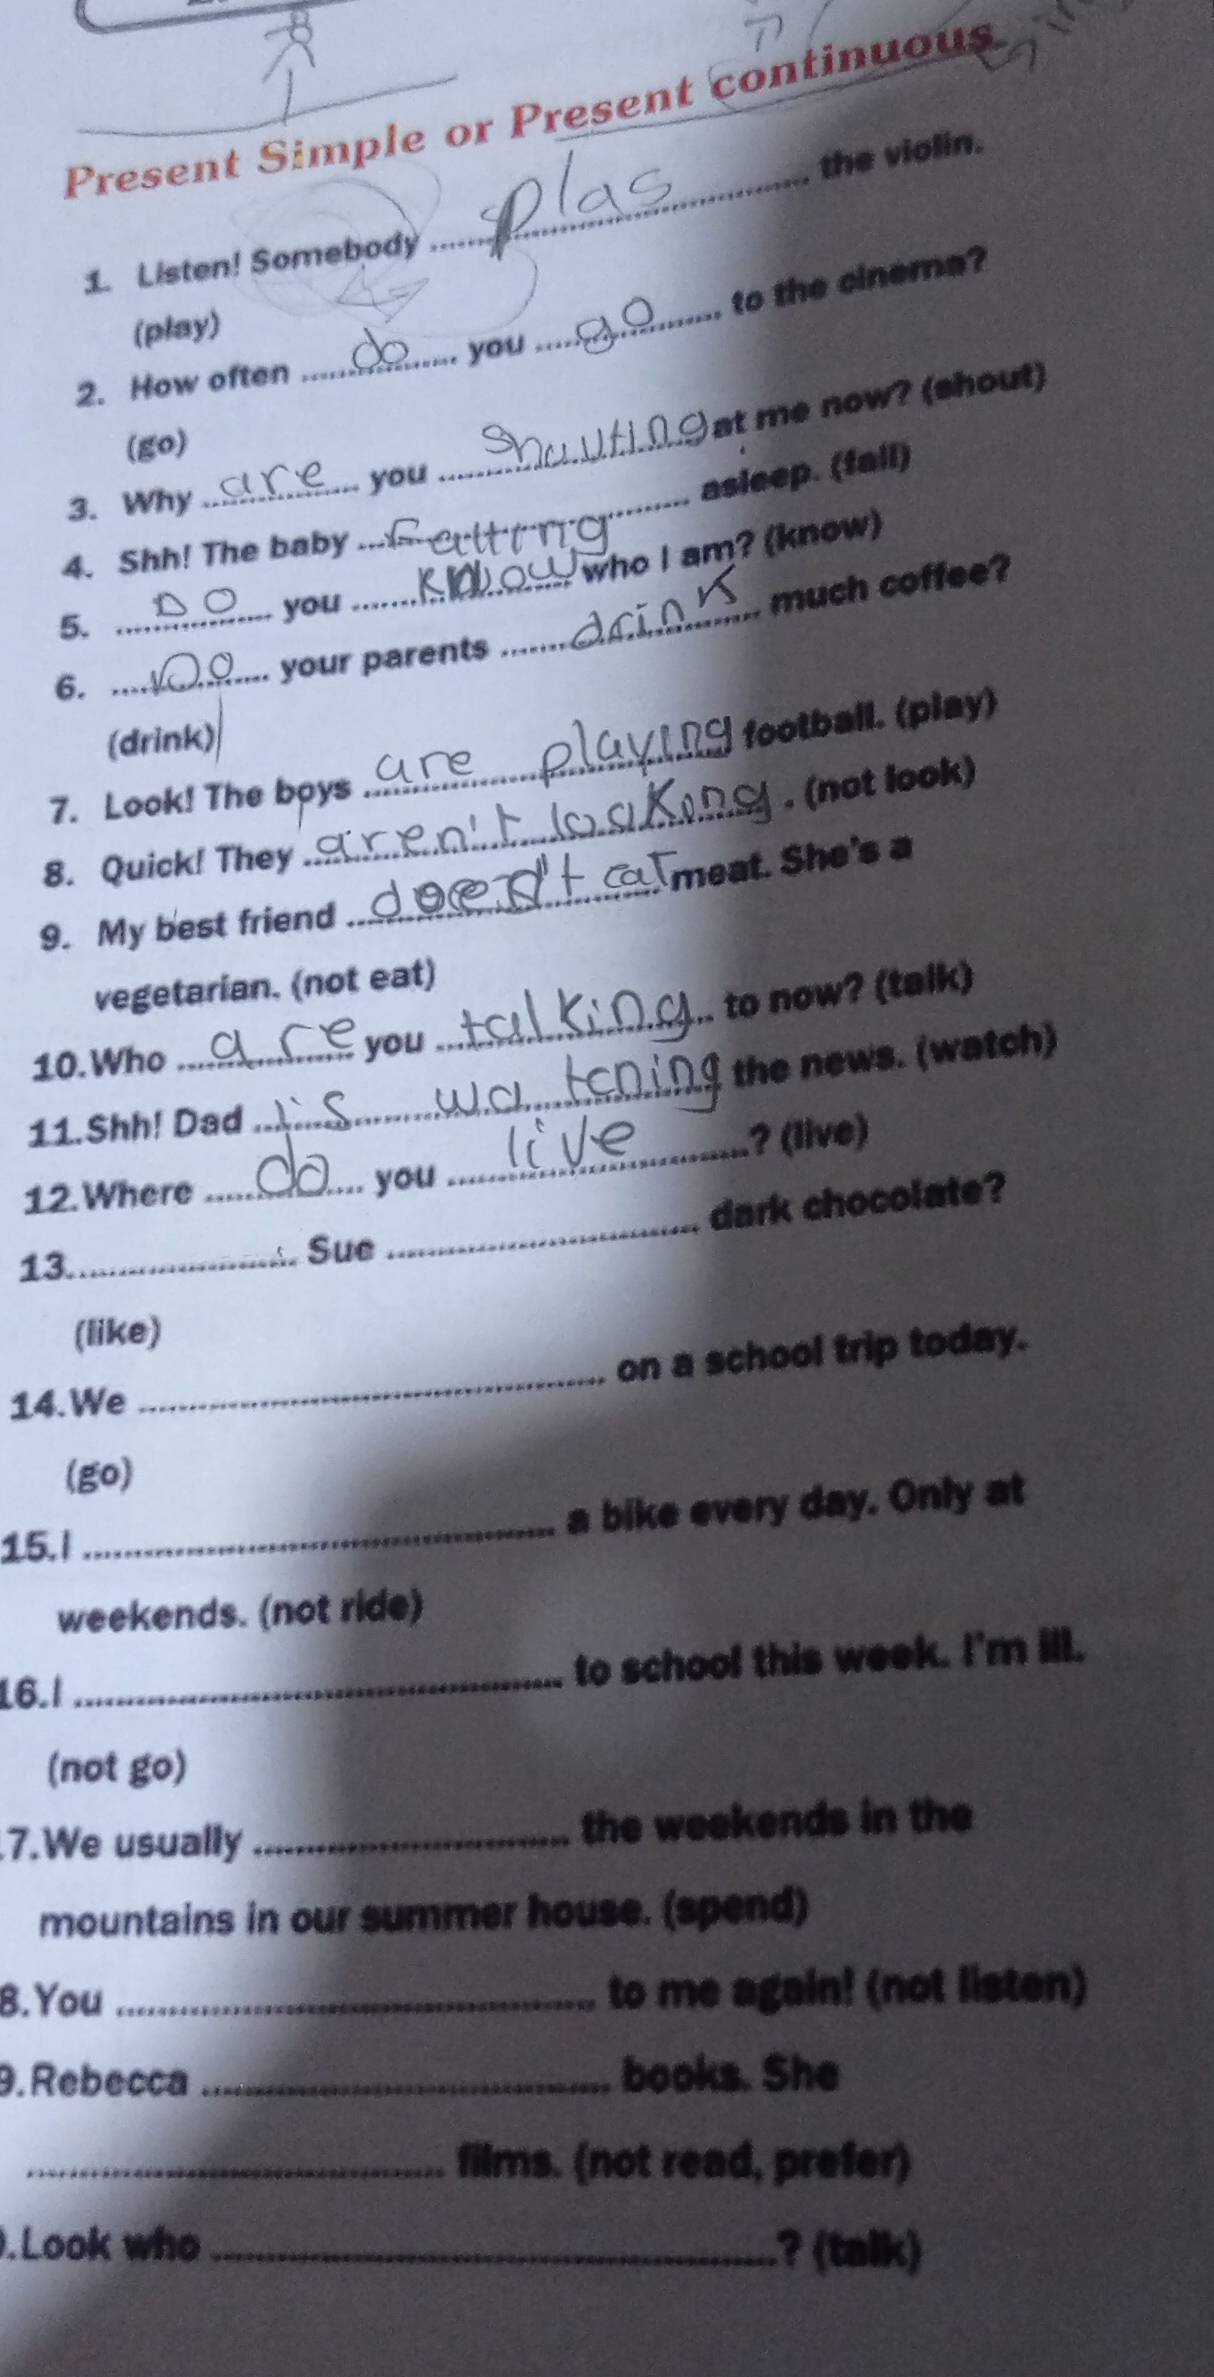 Present Simple or Present continuous
1. Listen! Somebody plas the violin.
(play)
2. How often do you go to the cinema?
(go)
3. Why are you shouting at me now? (shout)
4. Shh! The baby asleep. (fall)
5. DO you know who I am? (know)
6. DO your parents drink much coffee?
(drink)
7. Look! The boys are playing football. (play)
8. Quick! They aren't looking. (not look)
9. My best friend meat. She's a
vegetarian. (not eat)
10.Who are you talking to now? (talk)
11.Shh! Dad is the news. (watch)
12.Where do you live ? (live)
13. Sue dark chocolate?
(like)
14.We on a school trip today.
(go)
15.I a bike every day. Only at
weekends. (not ride)
16.I to school this week. I'm ill.
(not go)
7.We usually the weekends in the
mountains in our summer house. (spend)
8.You to me again! (not listen)
9.Rebecca books. She
films. (not read, prefer)
.Look who ? (talk)